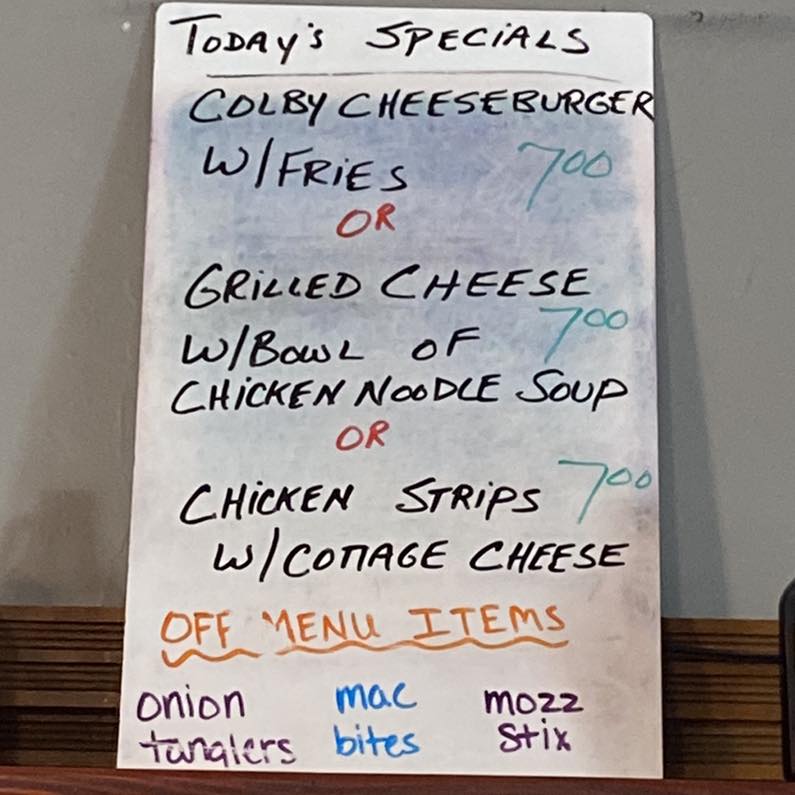 TODAY'S SPECIALS
COLBY CHEESEBURGER
W/FRIES 7.00
OR
GRILLED CHEESE
W/BOWL OF 7.00
CHICKEN NOODLE SOUP
OR
CHICKEN STRIPS 7.00
W/COTTAGE CHEESE
OFF MENU ITEMS
onion mac mozz
tanglers bites stix